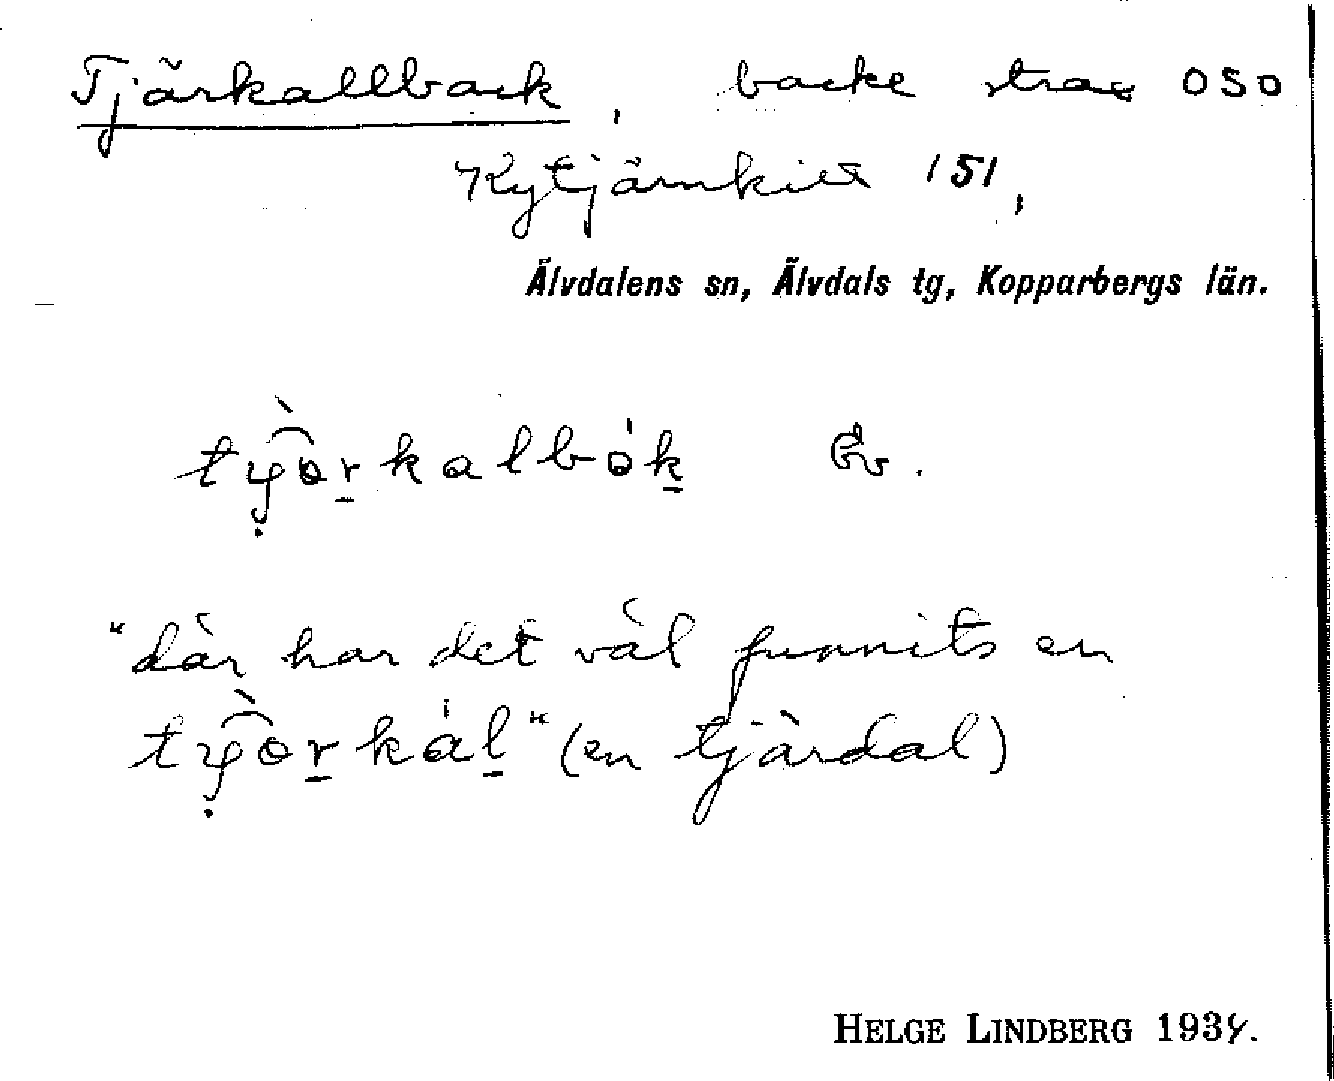 Tjärkallback, backe strax OSO
Kytjärnkilä 151,
Älvdalens sn, Älvdals tg, Kopparbergs län.
työrkalbók Év.
"där har det väl funnits en
työrkál" (en tjärdal)
HELGE LINDBERG 1934.